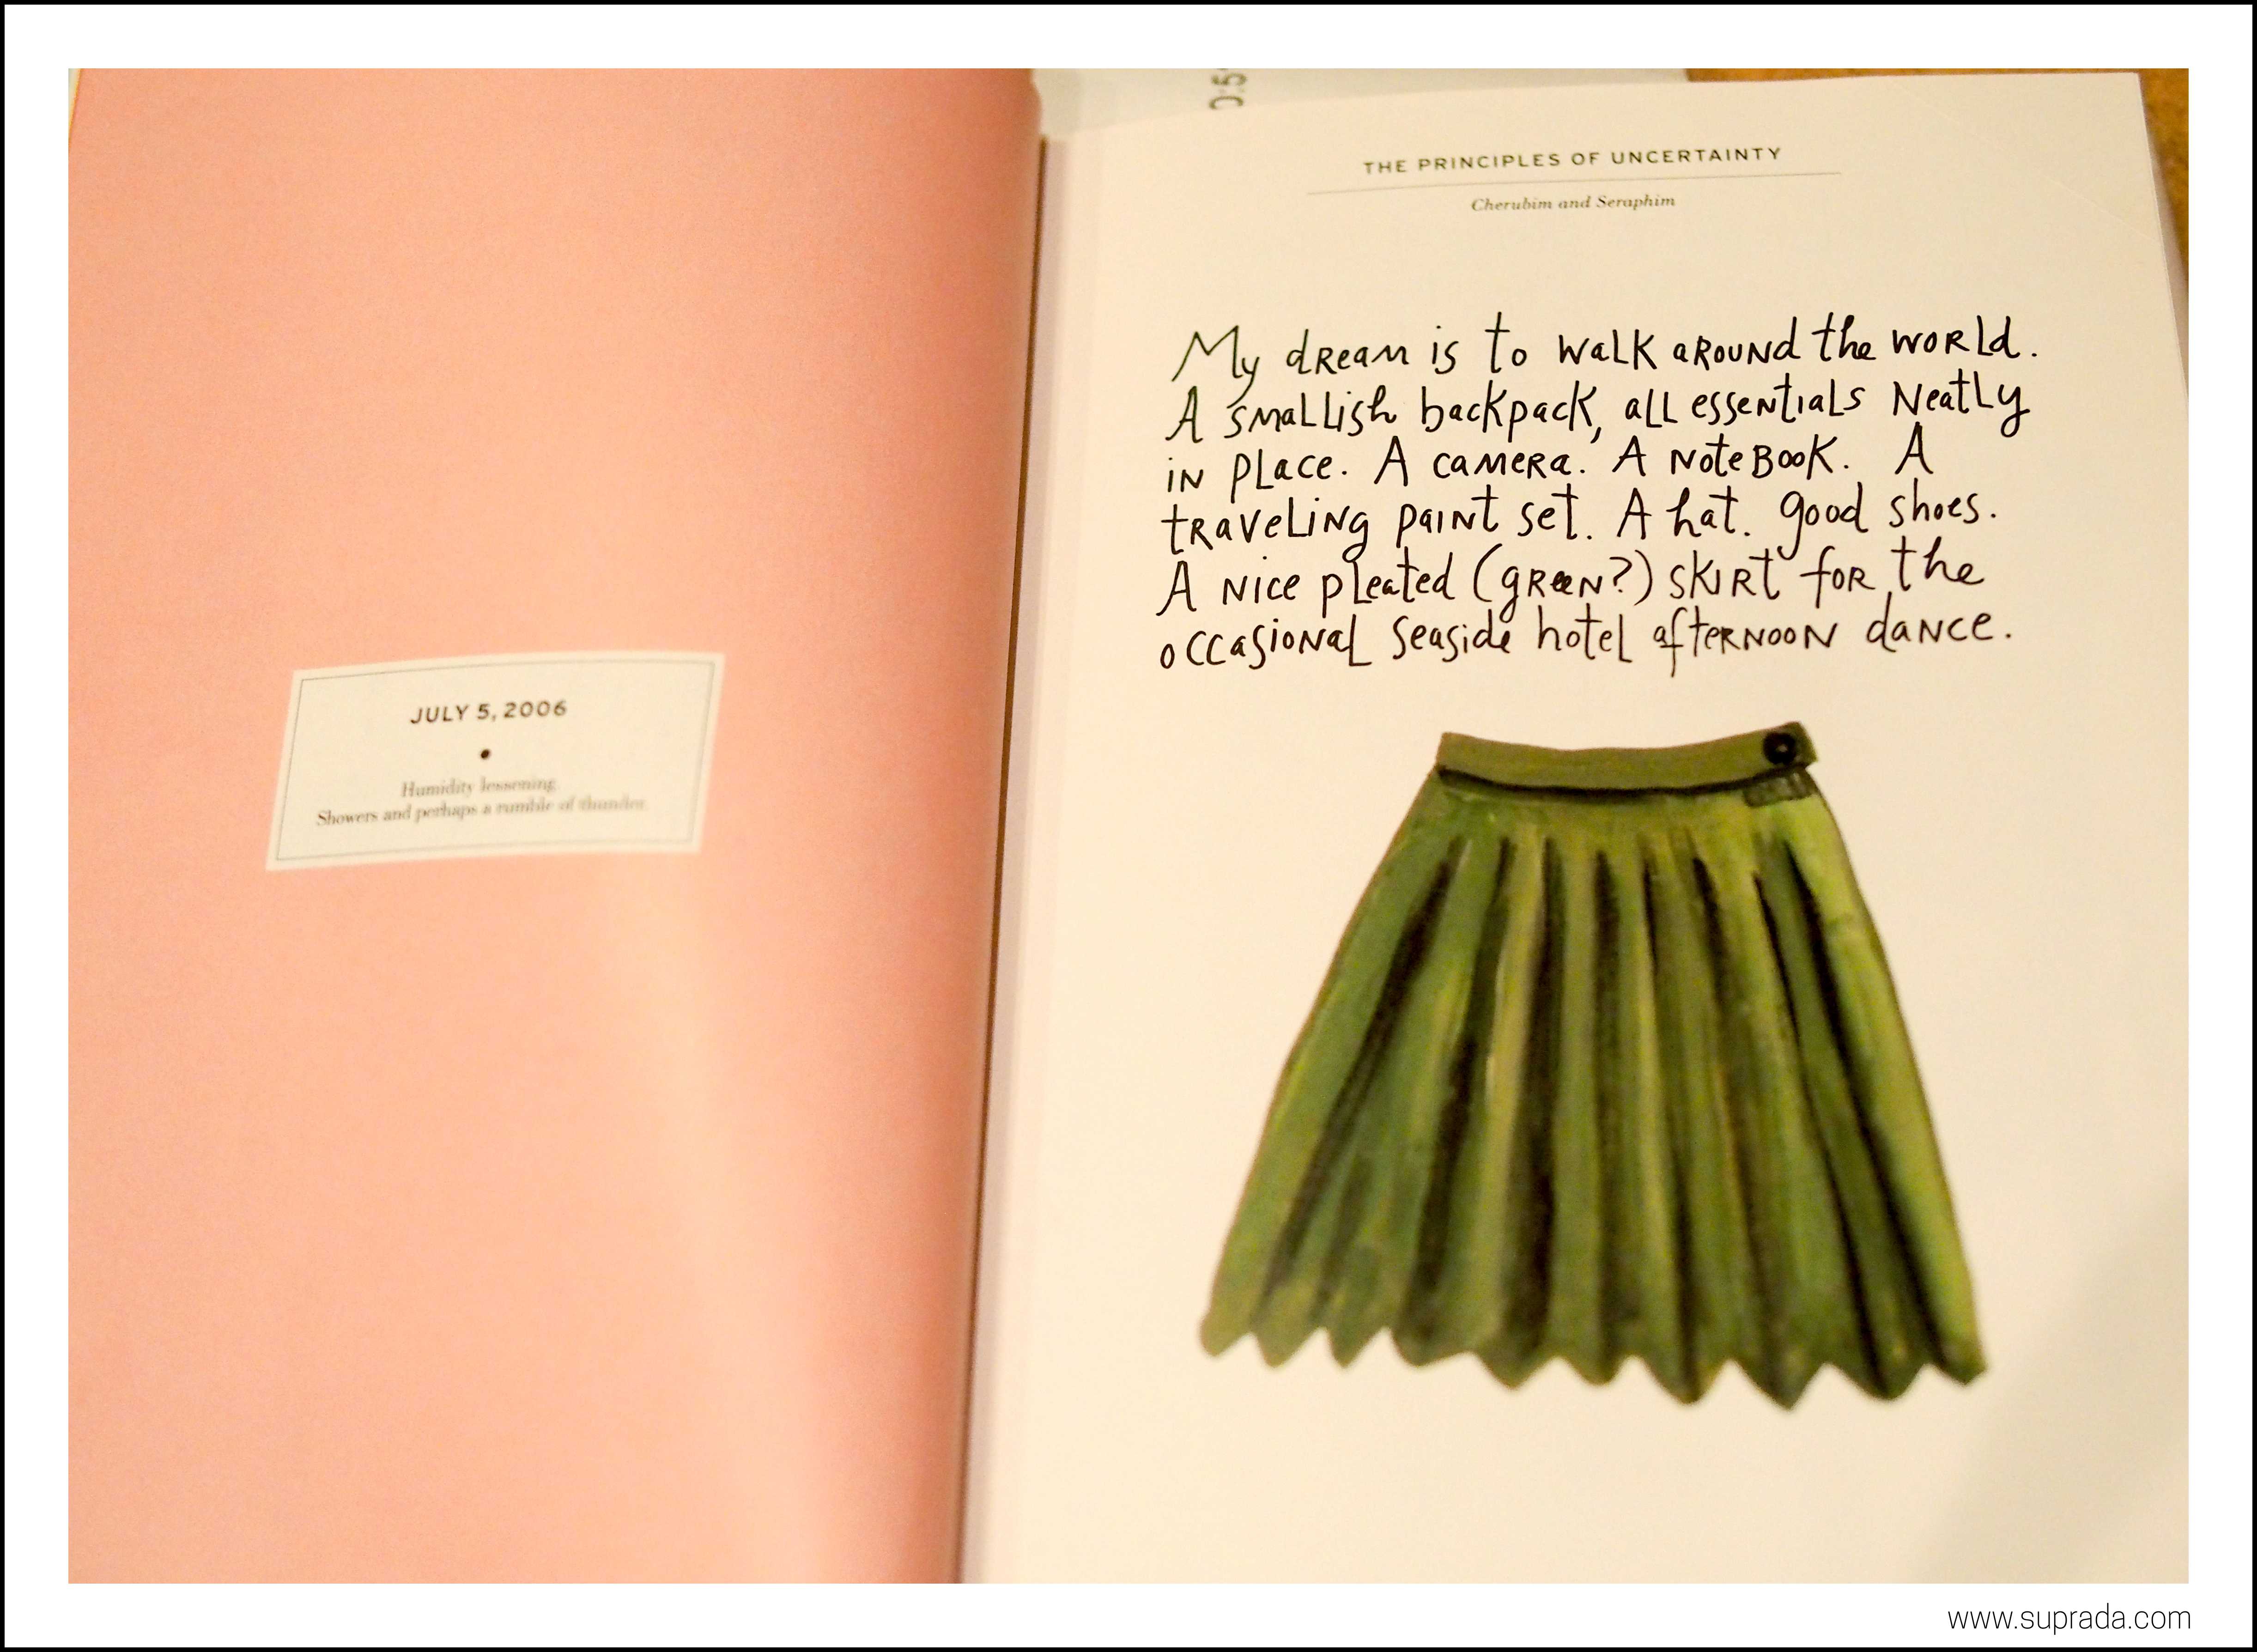 JULY 5, 2006
Humidity lessening
Showers and perhaps a rumble of thunder.
0:5
THE PRINCIPLES OF UNCERTAINTY
Cherubim and Seraphim
My dream is to walk around the world.
A smallish backpack, all essentials neatly
in place. A camera. A notebook. A
traveling paint set. A hat. good shoes.
A nice pleated (green?) skirt for the
occasional seaside hotel afternoon dance.
www.suprada.com